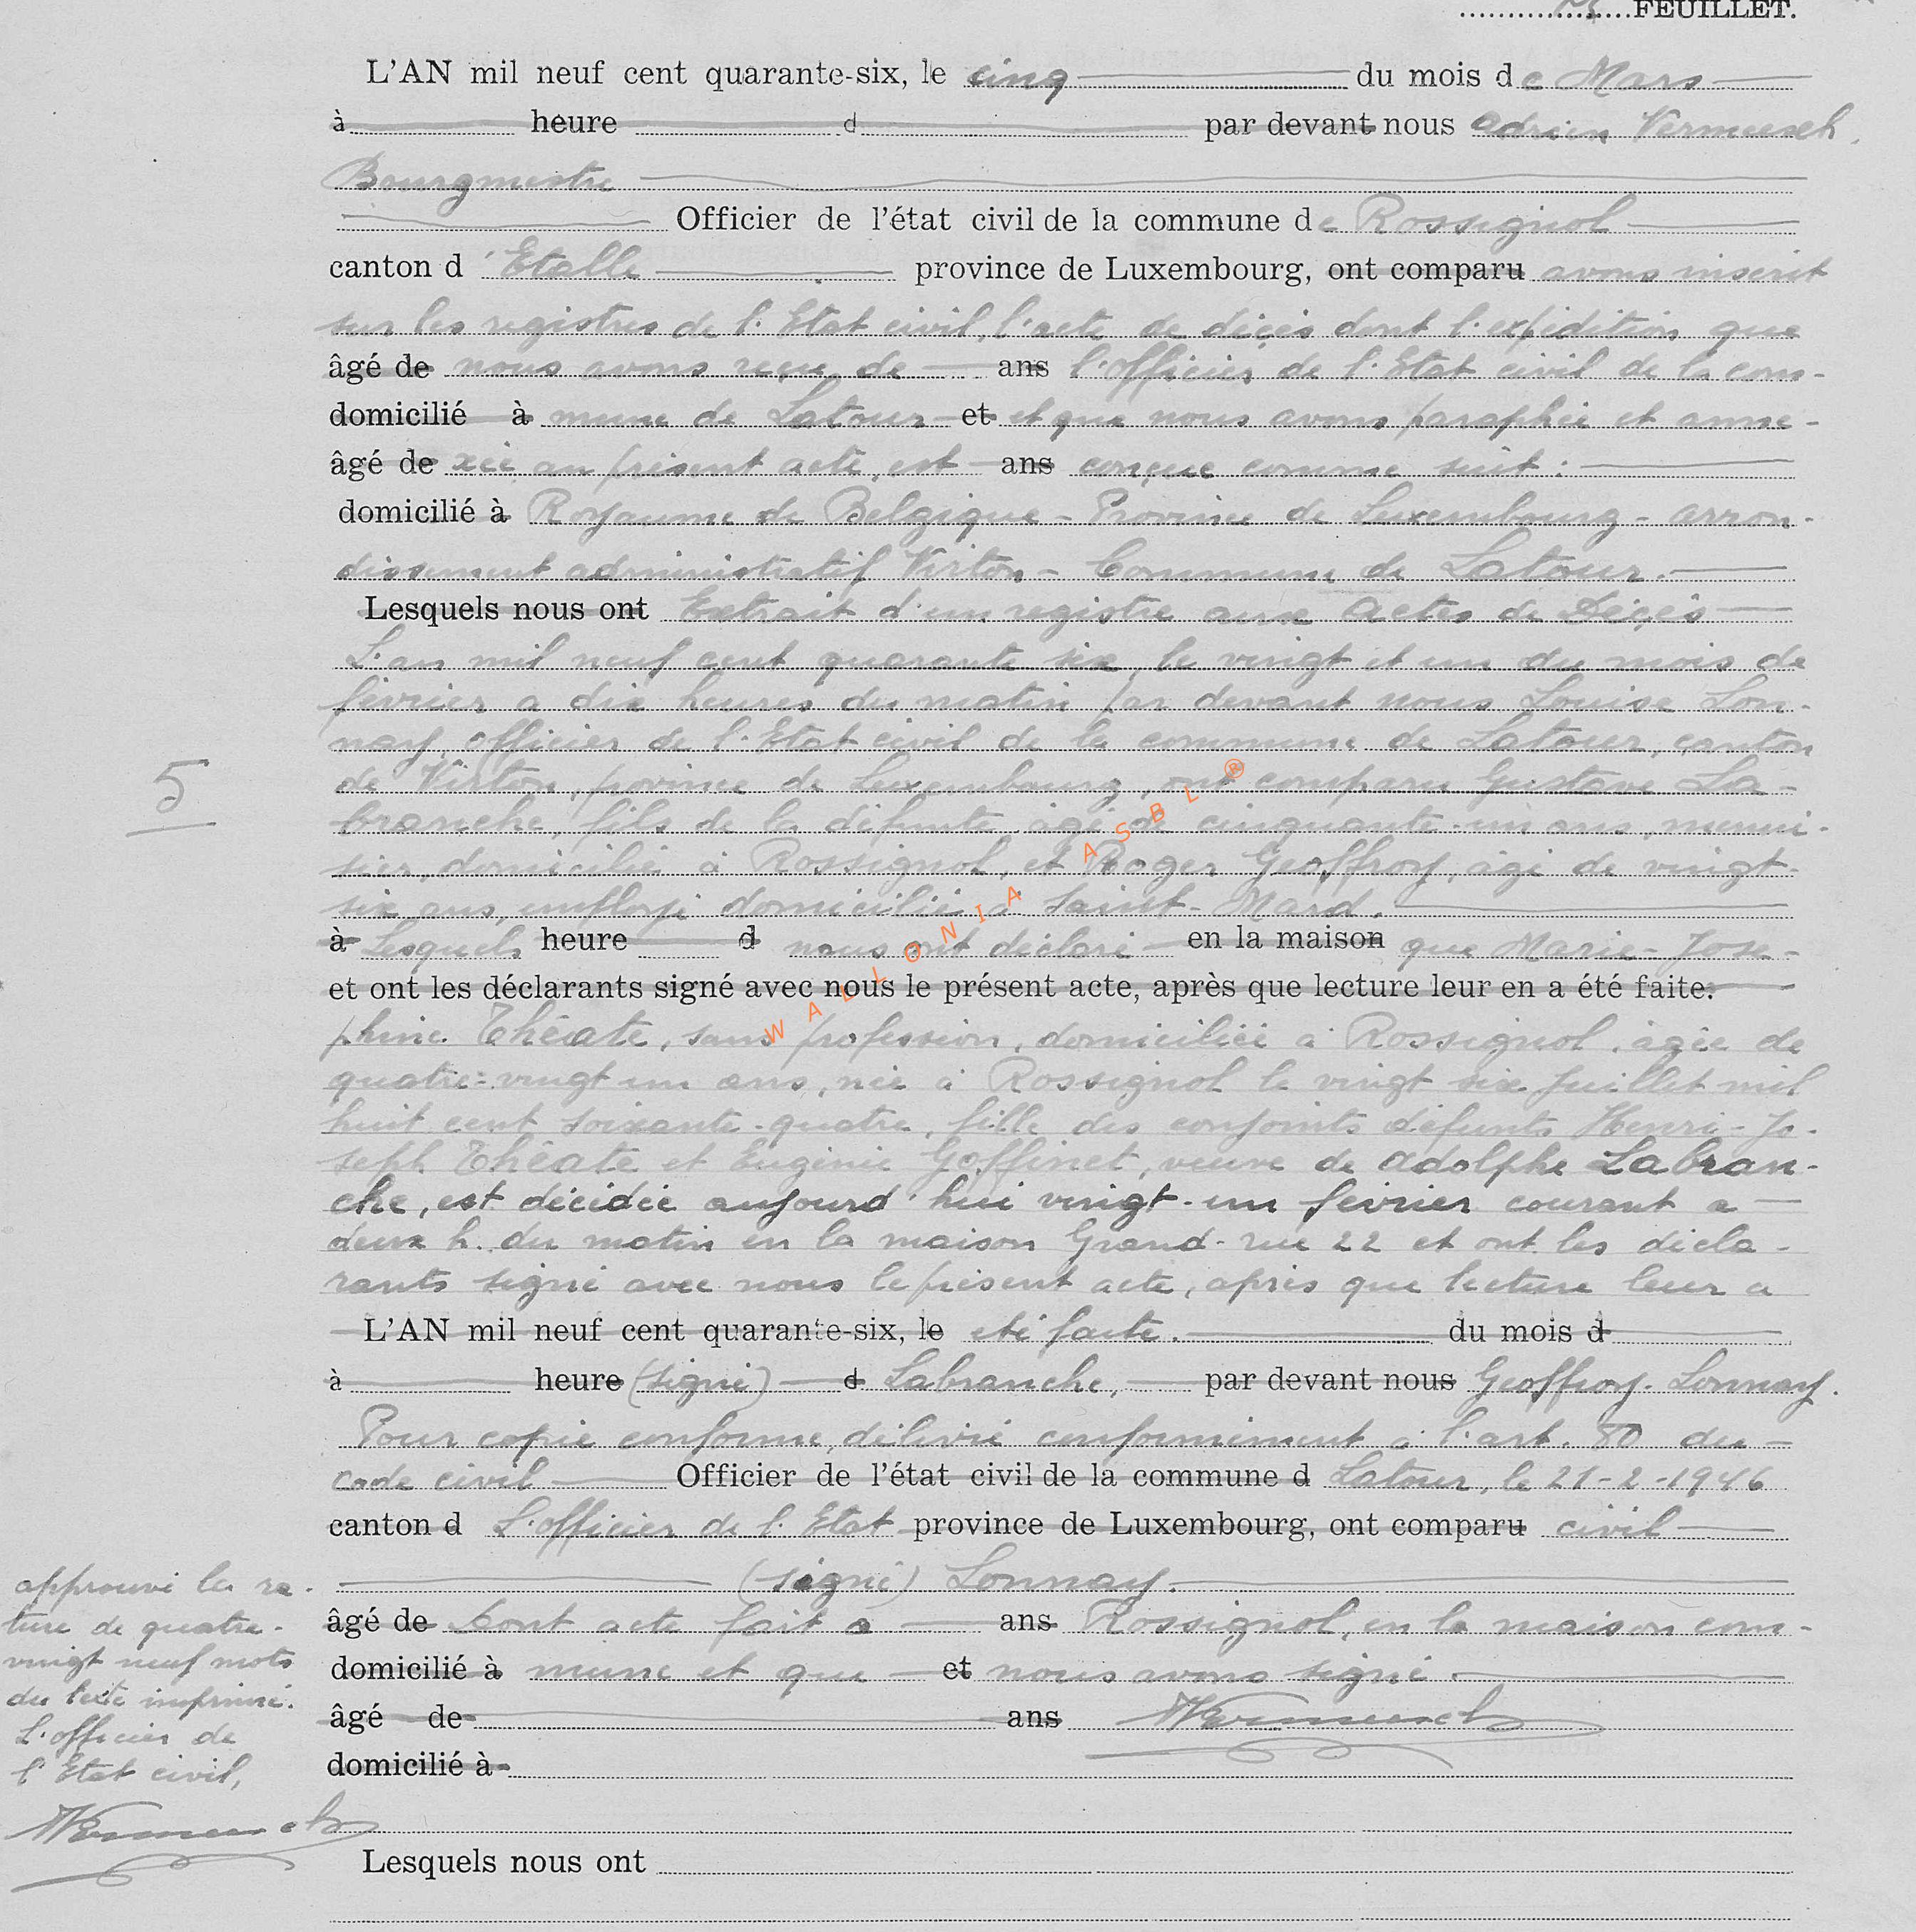 FEUILLET.
L'AN mil neuf cent quarante-six, le cinq du mois de Mars
à heure d par devant nous Adrien Vermeesch,
Bourgmestre
Officier de l'état civil de la commune de Rossignol
canton d'Etalle province de Luxembourg, ont comparu avons inscrit
sur les registres de l'Etat civil, l'acte de décès dont l'expédition que
âgé de nous avons reçue de ans l'officier de l'Etat civil de la com-
domicilié à mune de Latour et et que nous avons paraphée et anne-
âgé de xée au présent acte, est ans conçue comme suit :
domicilié à Royaume de Belgique - Province de Luxembourg - arron-
dissement administratif Virton - Commune de Latour.
Lesquels nous ont Extrait d'un registre aux Actes de Décès
L'an mil neuf cent quarante six, le vingt et un du mois de
février a dix heures du matin par devant nous Louise Lon-
nay, officier de l'Etat civil de la commune de Latour, canton
de Virton, province de Luxembourg, ont comparu Gustave La-
branche, fils de la défunte, âgé de cinquante-un ans, menui-
5
sier, domicilié à Rossignol, et Roger Geoffroy, âgé de vingt-
six ans, employé domicilié à Saint-Mard.
à Lesquels heure d nous ont déclaré en la maison que Marie-Jose-
et ont les déclarants signé avec nous le présent acte, après que lecture leur en a été faite.
phine Théate, sans profession, domiciliée à Rossignol, âgée de
quatre-vingt un ans, née à Rossignol le vingt six Juillet mil
huit cent soixante-quatre, fille des conjoints défunts Henri-Jo-
seph Théate et Eugénie Goffinet, veuve de Adolphe Labran-
che, est décédée aujourd'hui vingt-un février courant a
deux h. du matin en la maison Grand-rue 22 et ont les décla-
rants signé avec nous le présent acte, après que lecture leur a
L'AN mil neuf cent quarante-six, le été faite. du mois d
à heure (signé) d Labranche, par devant nous Geoffroy. Lonnay.
Pour copie conforme, délivré conformément à l'art. 80 du
code civil Officier de l'état civil de la commune d Latour, le 21-2-1946
canton d L'officier de l'Etat province de Luxembourg, ont comparu civil
(signé) Lonnay.
âgé de Dont acte fait a ans Rossignol, en la maison com-
domicilié à mune et que et nous avons signé.
âgé de ans Vermeesch
domicilié à
Lesquels nous ont
approuvé la ra-
ture de quatre-
vingt neuf mots
du texte imprimé.
L'officier de
l'Etat civil,
Vermeesch
WALLONIA ASBL ®